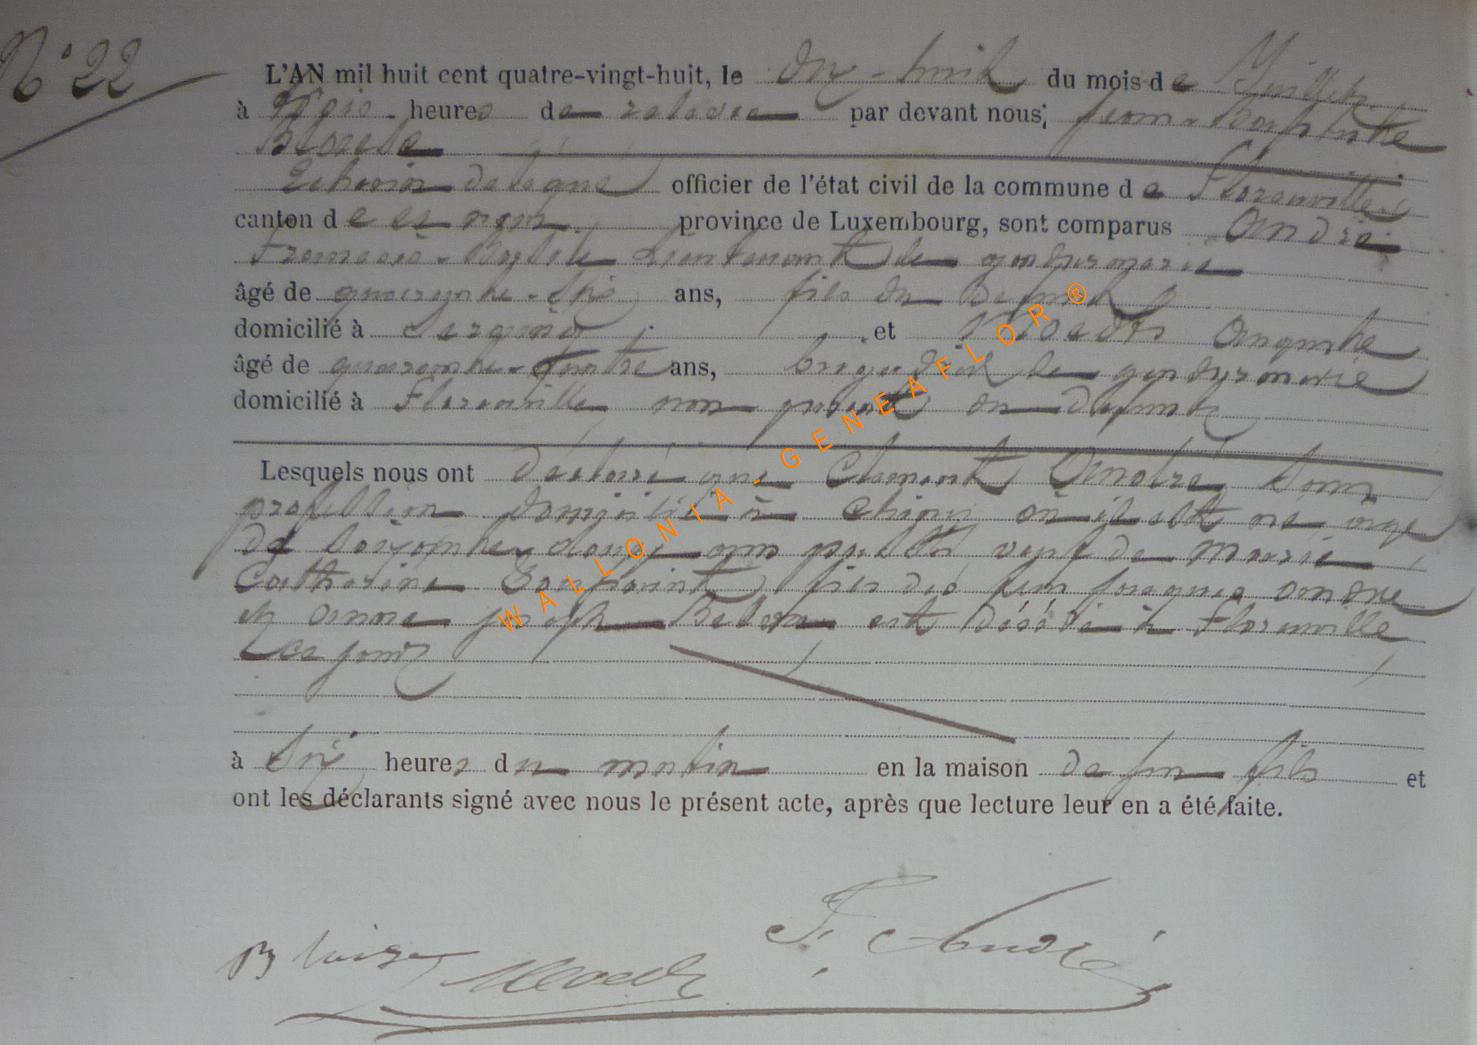 N° 22
L'AN mil huit cent quatre-vingt-huit, le dix-huit du mois de Juillet
à trois heures de relevée par devant nous; Jean-Baptiste
Blaise
Echevin délégué officier de l'état civil de la commune de Florenville
canton de ce nom province de Luxembourg, sont comparus André
François lieutenant de gendarmerie
âgé de quarante ans, fils du défunt
domicilié à et
âgé de quarante quatre ans, brigadier de gendarmerie
domicilié à Florenville non parent du défunt
Lesquels nous ont déclaré que Clement André sans
profession domicilié à Chiny où il est né âgé
de soixante douze ans veuf de Marie
Catherine fils des feu Jacques André
et Anne Joseph est décédé à Florenville
ce jour
à heures du matin en la maison de son fils et
ont les déclarants signé avec nous le présent acte, après que lecture leur en a été faite.
Blaise F. André
WALLONIA - GENEAFLOR ®